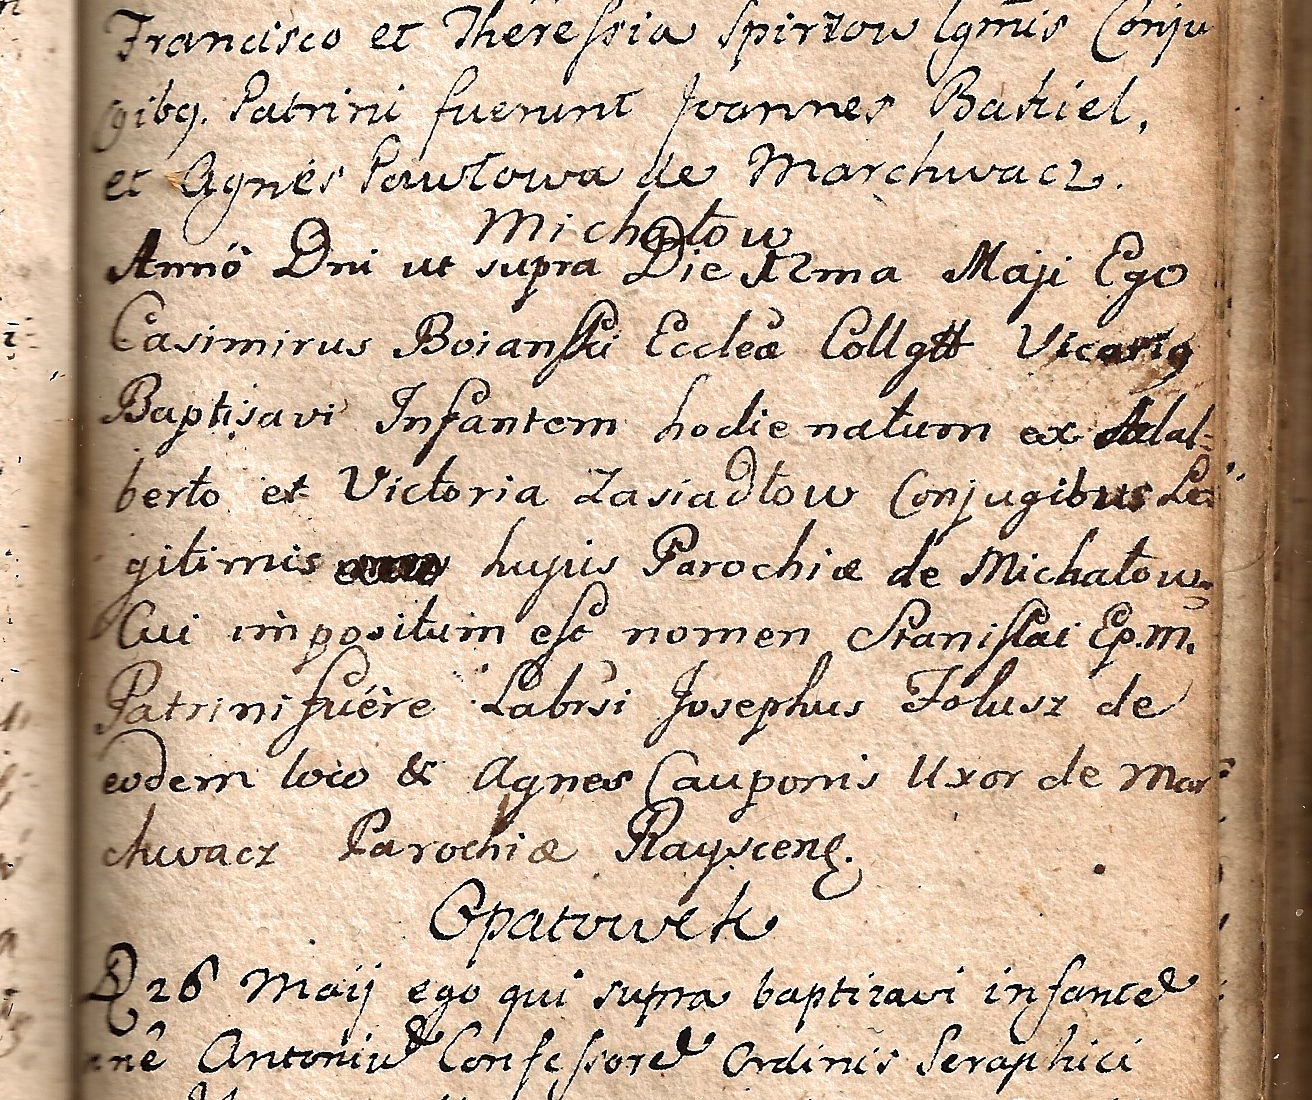 Francisco et Theressia Spirzow lgmis Conju
gibq. Patrini fuerunt Joannes Bakiel,
et Agnes Pawłowa de Marchwacz.
Michałow
Anno Dni ut supra Die 12ma Maji Ego
Casimirus Boianski Eccleæ Collgtt Vicariq
Baptisavi Infantem hodie natum ex Adal=
berto et Victoria Zasiadłow Conjugibus Le=
gitimis hujus Parochiæ de Michałow
Cui impositum est nomen Stanislai Ep.m.
Patrini fuere Labrsi Josephus Folusz de
eodem loco & Agnes Cauponis Uxor de Mar
chwacz Parochiæ Raysceng.
Opatowek
D 26 Maij ego qui supra baptizavi infante
nne Antoniu Confessore Ordinis Seraphici